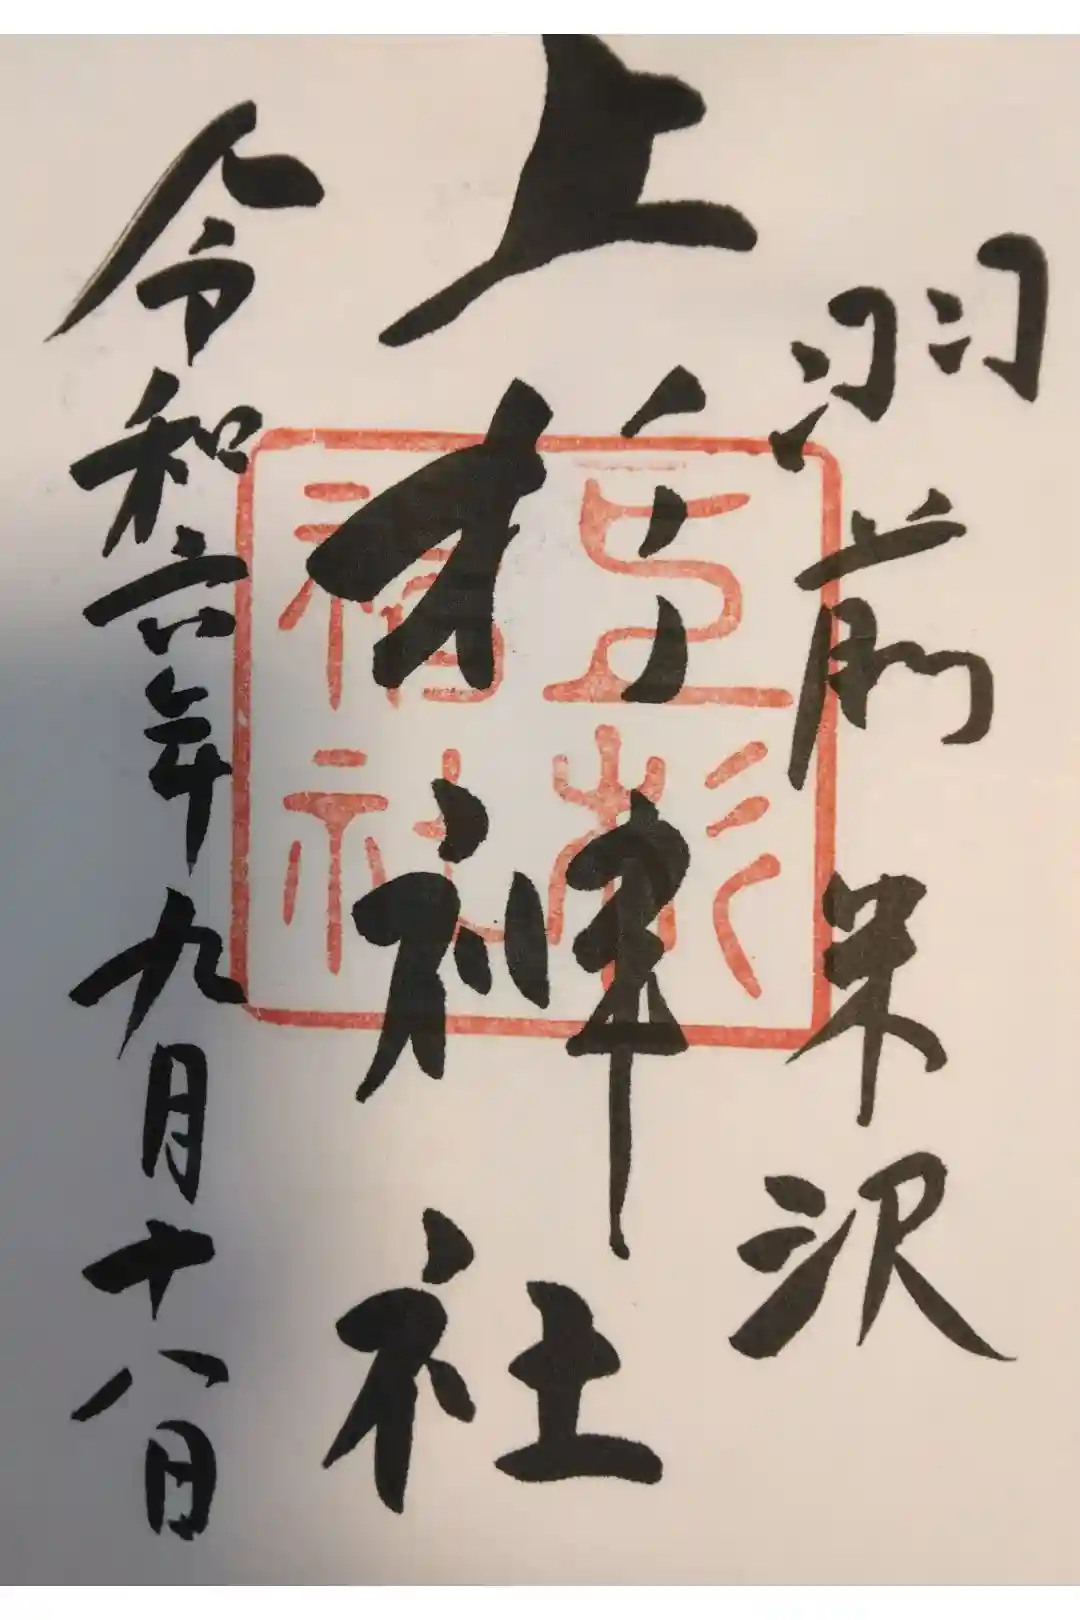 羽前米沢
上杉神社
令和六年九月十八日
上杉
神社